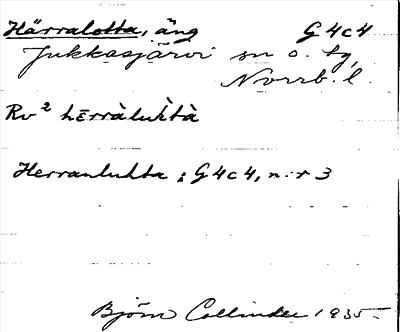 Härralotta, äng G4c4
Jukkasjärvi sn o. tg,
Norrb. l.
Rv² hērràluk̀tà
Herranluhta ; G4c4, n:r 3
Björn Collinder 1935